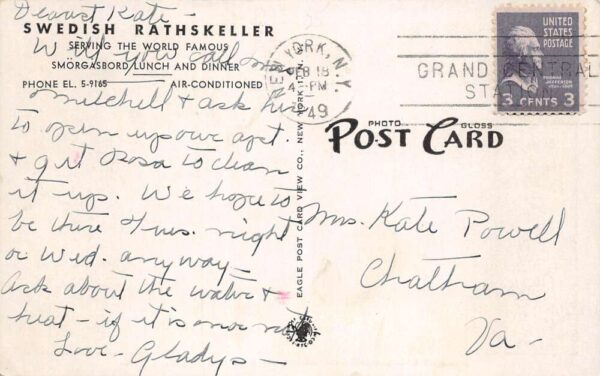 Dearest Kate -
SWEDISH RATHSKELLER
SERVING THE WORLD FAMOUS
Will you call Mr.
SMORGASBORD, LUNCH AND DINNER
PHONE EL. 5-9165 AIR-CONDITIONED
Mitchell & ask him
to open up our apt.
& get Rosa to clean
it up. We hope to
be there Tues. night
or Wed. anyway -
Ask about the water &
heat - if it is on or not
Love - Gladys -
EAGLE POST CARD VIEW CO., NEW YORK 1, N.Y.
NEW YORK, N.Y.
FEB 18
4 PM
'49
GRAND CENTRAL
STATION
UNITED
STATES
POSTAGE
THOMAS
JEFFERSON
3 CENTS 3
PHOTO GLOSS
POST CARD
Mrs. Kate Powell
Chatham
Va -